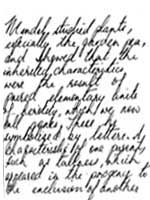 Mendel studied plants,
especially the garden pea,
and showed that the
inherited characteristics
were the result of
paired elementary units
of heredity, which we now
symbolized by letters. A
characteristic of one parent,
such as tallness, which
appeared in the progeny to
the exclusion of another